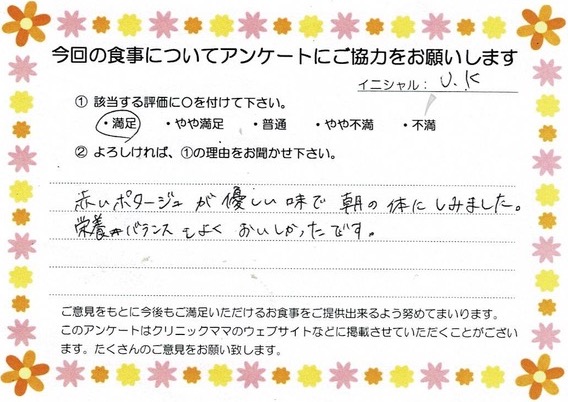 今回の食事についてアンケートにご協力をお願いします
イニシャル： U.K
① 該当する評価に○を付けて下さい。
・満足 ・やや満足 ・普通 ・やや不満 ・不満
② よろしければ、①の理由をお聞かせ下さい。
赤いポタージュが優しい味で朝の体にしみました。
栄養バランスもよくおいしかったです。
ご意見をもとに今後もご満足いただけるお食事をご提供出来るよう努めてまいります。
このアンケートはクリニックママのウェブサイトなどに掲載させていただくことがござい
ます。たくさんのご意見をお願い致します。